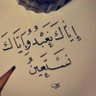 إِيَّاكَ نَعْبُدُ وَإِيَّاكَ
نَسْتَعِينُ